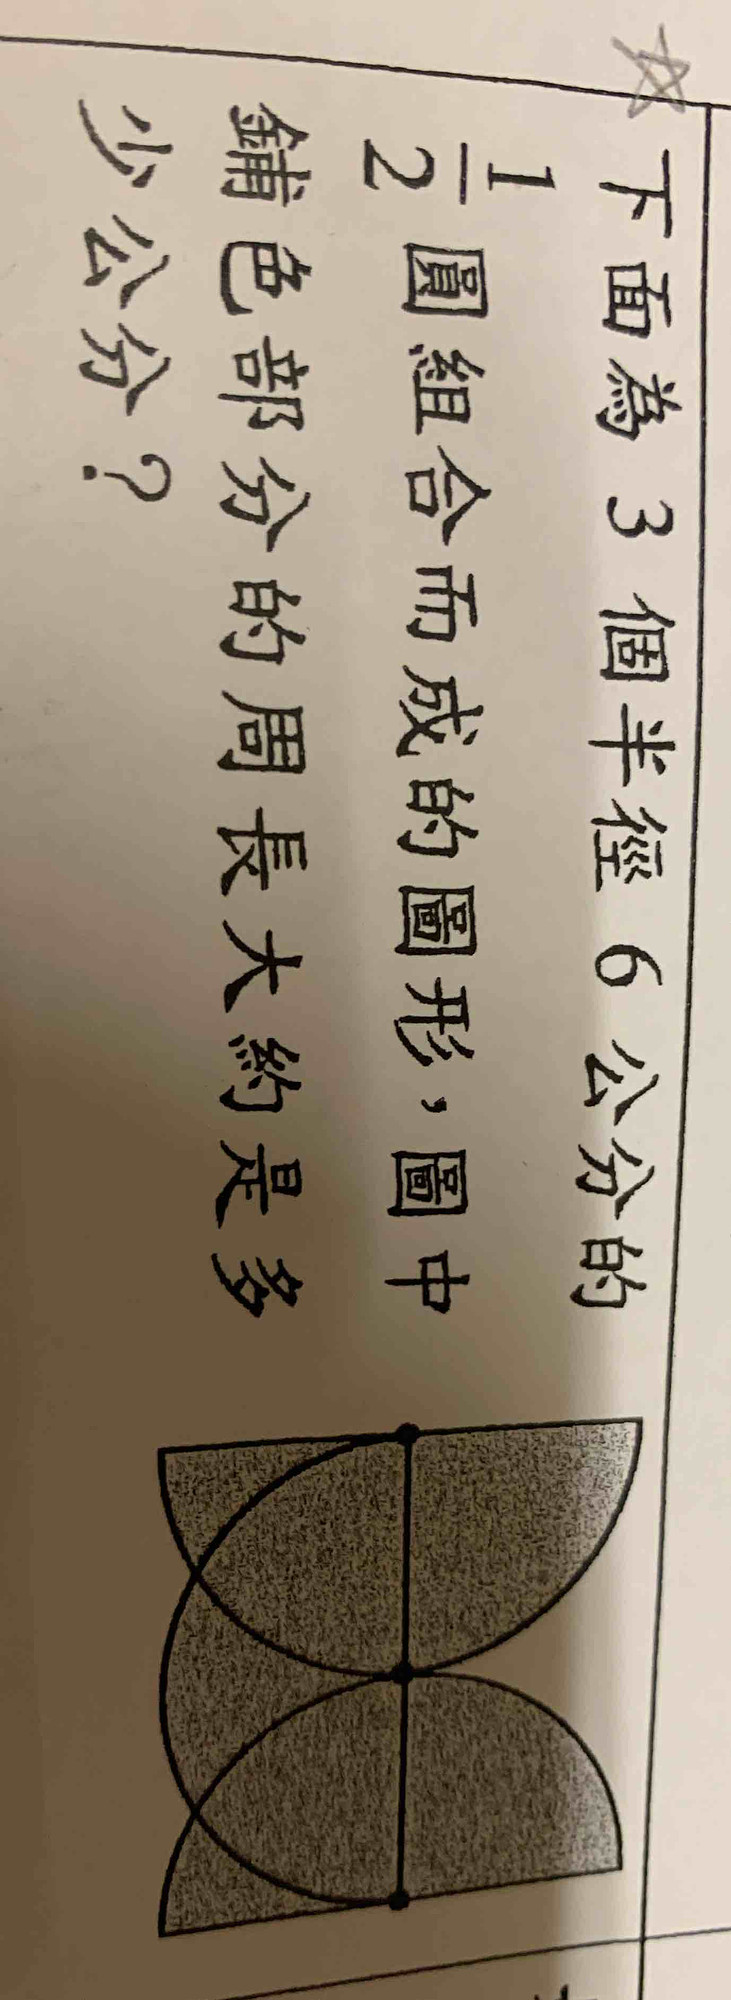 下面為 3 個半徑 6 公分的
1/2 圓組合而成的圖形，圖中
鋪色部分的周長大約是多
少公分？